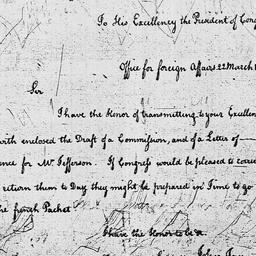 To His Excellency the President of Cong
Office for foreign Affairs 22 March 1
Sir
I have the Honor of transmitting to your Excellen
with enclosed the Draft of a Commission, and of a Letter of
ence for Mr. Jefferson. If Congress would be pleased to correc
return them to Day they might be prepared in Time to go
he french Packet
I have the Honor to be &
John Jay